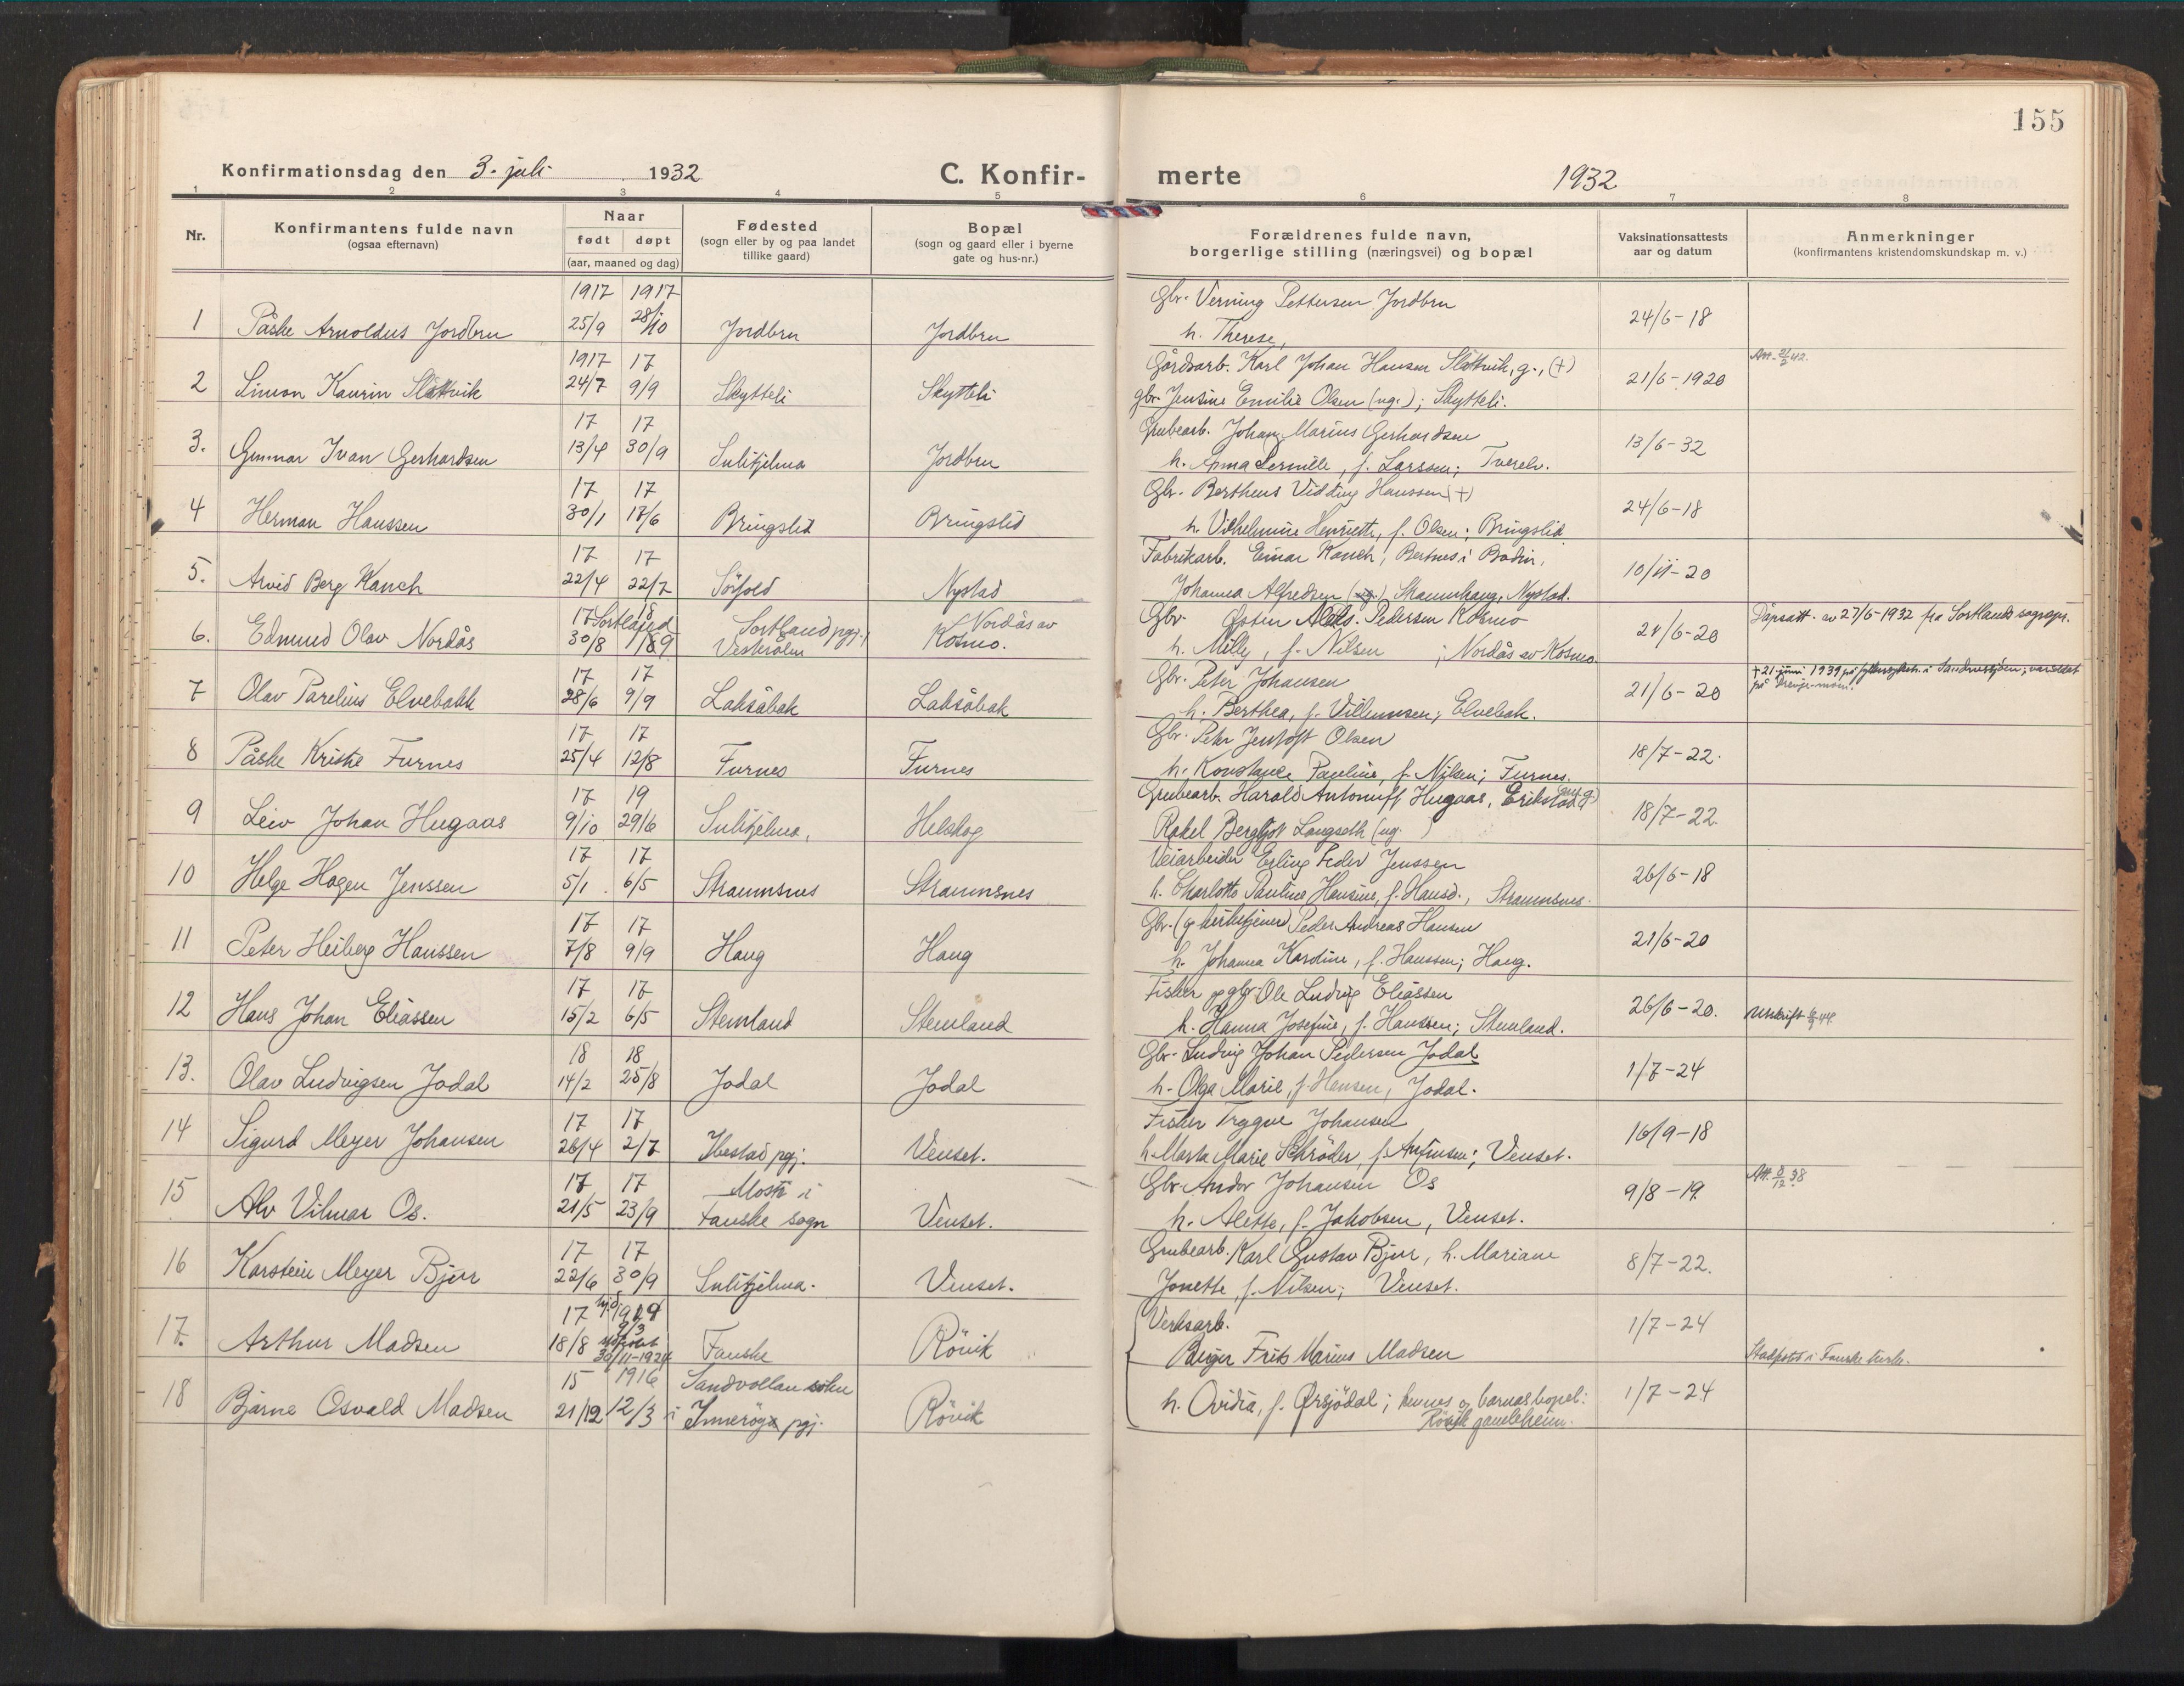 155
Konfirmationsdag den 3. juli 1932
C. Konfir-
merte
1932
1 2 3 4 5 6 7 8
Nr.
Konfirmantens fulde navn
(ogsaa efternavn)
Naar
født døpt
(aar, maaned og dag)
Fødested
(sogn eller by og paa landet
tillike gaard)
Bopæl
(sogn og gaard eller i byerne
gate og hus-nr.)
Forældrenes fulde navn,
borgerlige stilling (næringsvei) og bopæl
Vaksinationsattests
aar og datum
Anmerkninger
(konfirmantens kristendomskundskap m. v.)
1917 1917 Gbr. Verning Pettersen Jordbru
1 Påske Arnoldus Jordbru 25/9 28/10 Jordbru Jordbru h. Therese, 24/6-18
1917 17 Gårdsarb. Karl Johan Hansen Slåttvik, g., (+) Att. 2/2 42.
2 Simon Kaurin Slåttvik 24/7 9/9 Skytteli Skytteli gbr. Jensine Emilie Olsen (ug.); Skytteli. 21/6-1920
17 17 Grubearb. Johan Marius Gerhardsen
3. Gunnar Ivan Gerhardsen 13/4 30/9 Sulitjelma Jordbru h. Anna Pernille, f. Larssen; Tverelv. 13/6-32
17 17 Gbr. Bertheus Vidding Hanssen (+)
4 Herman Hanssen 30/1 17/6 Bringslid Bringslid h. Vilhelmine Henriette, f. Olsen; Bringslid 24/6-18
17 17 Fabrikarb. Einar Kanch, Bertnes i Bodin,
5. Arvid Berg Kanch 22/4 22/7 Sörfold Nystad Johanna Alfredsen (ug.) Skaumhaug, Nystad. 10/11-20
17 Sortland 18 Sortland pgj., Nordås av Gbr. Østen Pedersen Kosmo Dåpsatt. av 27/6-1932 fra Sortlands sogepr.
6. Edmund Olav Nordås 30/8 1/9 Vesterålen Kosmo. h. Milly, f. Nilsen; Nordås av Kosmo. 24/6-20
17 17 Gbr. Peter Johansen + 21 juni 1939 på fylkessykeh. i Sandnessjöen; vanellet
7 Olav Parelius Elvebakk 28/6 9/9 Laksåbak Laksåbak h. Berthea, f. Villumsen; Elvebak. 21/6-20 på
17 17 Gbr. Peter Jentoft Olsen
8 Påske Kristie Furnes 25/4 12/8 Furnes Furnes h. Konstance Pauline, f. Nilsen; Furnes. 18/7-22.
17 19 Grubearb. Harald Antonuff Hugaas, Erikstad (ug.)
9 Leiv Johan Hugaas 9/10 29/6 Sulitjelma, Helskog Rakel Bergljot Langseth (ug. ) 18/7-22.
17 17 Veiarbeider Erling Peder Jenssen
10 Helge Hagen Jenssen 5/1. 6/5 Straumsnes Straumsnes h. Charlotte Pauline Hansine, f. Hansd., Straumsnes. 26/6-18
17 17 Gbr. (g kirketjener) Peder Andreas Hansen
11 Peter Heiberg Hanssen 7/8 9/9 Haug Haug h. Johanna Kardine, f. Hanssen; Haug. 21/6-20
17 17 Fisker og gbr. Ole Ludvig Eliassen
12 Hans Johan Eliassen 15/2 6/5 Stemland Stemland h. Hanna Josefine, f. Hanssen; Stemland. 26/6-20. Utskrift 44.
18 18 Gbr. Ludvig Johan Pedersen Jodal
13. Olav Ludvigsen Jodal 14/2 25/8 Jodal Jodal h. Olga Marie, f. Hansen, Jodal. 1/7-24
17 17 Fisker Trygve Johansen
14 Sigurd Meyer Johansen 26/4 2/7 Ibestad pgj. Venset. h. Marta Marie Schröder, f. Anfinsen; Venset. 16/9-18
17 17 Mosti i Gbr. Andor Johansen Os Att. 8/12 38
15 Alv Vilmar Os. 21/5 23/9 Fauske sogn Venset. h. Alette, f. Jakobsen, Venset. 9/8-19.
17 17 Grubearb. Karl Gustav Bjur, h. Mariane
16 Karstein Meyer Bjur 22/6 30/9 Sulitjelma. Venset. Jonette, f. Nilsen; Venset. 8/7-22.
17 hjd. 1919 Verksarb. 1/7-24
17. Arthur Madsen 18/8 9/3 30/11-1924 Fauske Rövik Birger Frits Marius Madsen Stadfestet i Fauske kirke.
15 1916 Sandvollan sokn
18 Bjarne Osvald Madsen 21/12 12/3 i Inneröya pgj. Rövik h. Ovidia, f. Ørsjödal; hennes og barnas bopel: 1/7-24
Rövik gamleheim.